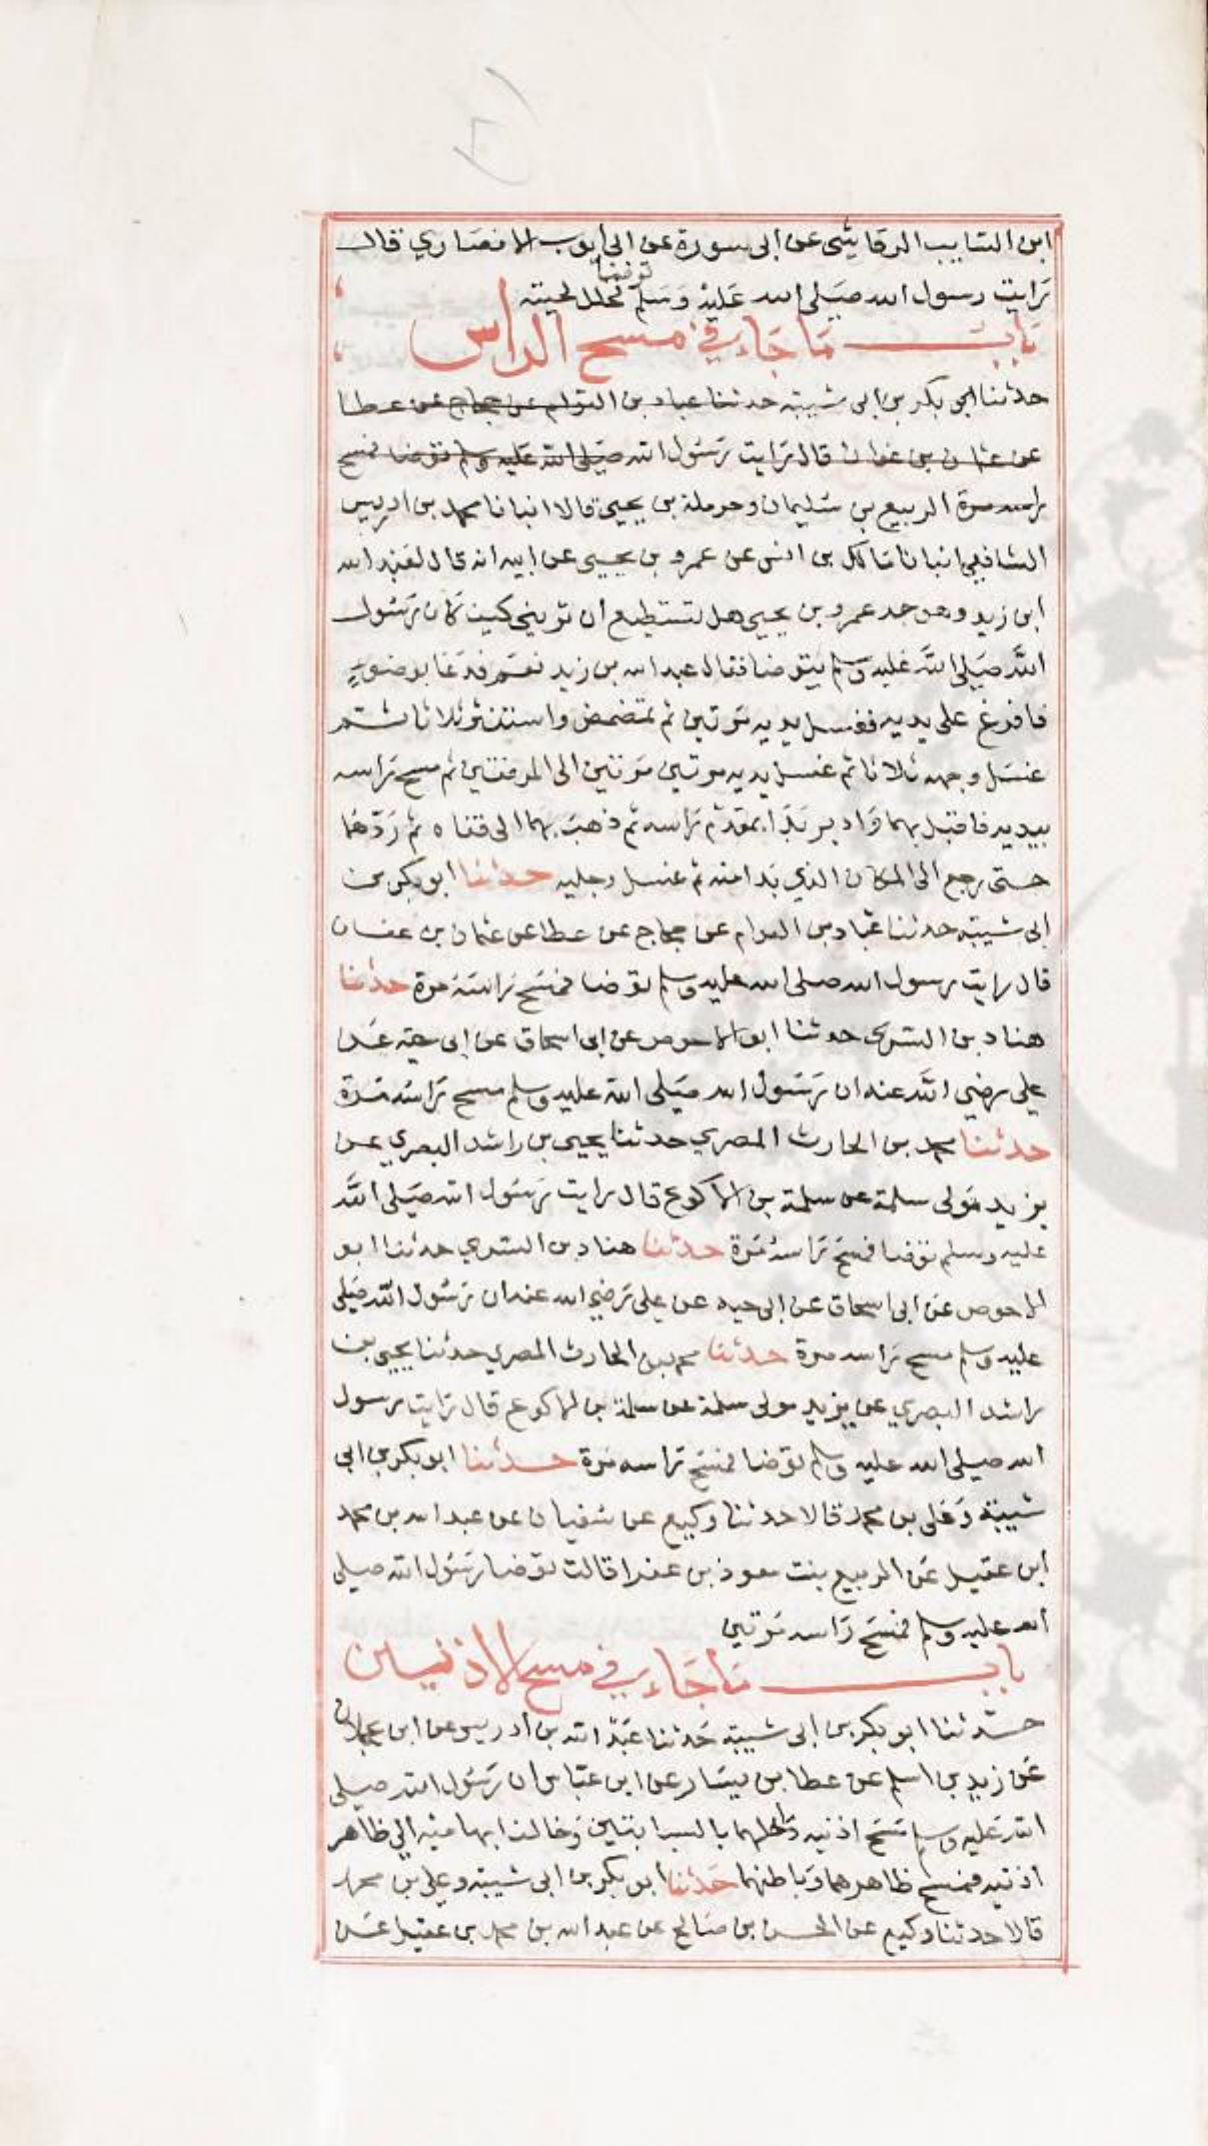 ابن السايب الرقاشي عن ابي سورة عن ابي ايوب الانصاري قال
رايت رسول الله صلى الله عليه وسلم توضا فخلل لحيته
باب ما جاء في مسح الراس
حدثنا ابو بكر بن ابي شيبة حدثنا عباد بن العوام عن حجاج عن عطا
عن عثمان بن عفان قال رايت رسول الله صلى الله عليه وسلم توضا فمسح
راسه مرة الربيع بن سليمان وحرملة بن يحيى قالا انبانا محمد بن ادريس
الشافعي انبانا مالك بن انس عن عمرو بن يحيى عن ابيه انه قال لعبد الله
ابن زيد وهو جد عمرو بن يحيى هل تستطيع ان تريني كيف كان رسول
الله صلى الله عليه وسلم يتوضا فقال عبد الله بن زيد نعم فدعا بوضوء
فافرغ على يديه فغسل يديه مرتين ثم تمضمض واستنثر ثلاثا ثم
غسل وجهه ثلاثا ثم غسل يديه مرتين مرتين الى المرفقين ثم مسح راسه
بيديه فاقبل بهما وادبر بدا بمقدم راسه ثم ذهب بهما الى قفاه ثم ردهما
حتى رجع الى المكان الذي بدا منه ثم غسل رجليه حدثنا ابو بكر بن
ابي شيبة حدثنا عباد بن العوام عن حجاج عن عطا عن عثمان بن عفان
قال رايت رسول الله صلى الله عليه وسلم توضا فمسح راسه مرة حدثنا
هناد بن السري حدثنا ابو الاحوص عن ابي اسحاق عن ابي حية عن
علي رضي الله عنه ان رسول الله صلى الله عليه وسلم مسح راسه مرة
حدثنا محمد بن الحارث المصري حدثنا يحيى بن راشد البصري عن
يزيد مولى سلمة عن سلمة بن الاكوع قال رايت رسول الله صلى الله
عليه وسلم توضا فمسح راسه مرة حدثنا هناد بن السري حدثنا ابو
الاحوص عن ابي اسحاق عن ابي حيه عن علي رضي الله عنه ان رسول الله صلى
عليه وسلم مسح راسه مرة حدثنا محمد بن الحارث المصري حدثنا يحيى بن
راشد البصري عن يزيد مولى سلمة عن سلمة بن الاكوع قال رايت رسول
الله صلى الله عليه وسلم توضا فمسح راسه مرة حدثنا ابو بكر بن ابي
شيبة وعلي بن محمد قالا حدثنا وكيع عن سفيان عن عبد الله بن محمد
ابن عقيل عن الربيع بنت معوذ بن عفرا قالت توضا رسول الله صلى
الله عليه وسلم فمسح راسه مرتين
باب ما جاء في مسح الاذنين
حدثنا ابو بكر بن ابي شيبة حدثنا عبد الله بن ادريس عن ابن عجلان
عن زيد بن اسلم عن عطا بن يسار عن ابن عباس ان رسول الله صلى
الله عليه وسلم مسح اذنيه داخلهما بالسبابتين وخالف ابهاميه الى ظاهر
اذنيه فمسح ظاهرهما وباطنهما حدثنا ابو بكر بن ابي شيبة وعلي بن محمد
قالا حدثنا وكيع عن الحسن بن صالح عن عبد الله بن محمد بن عقيل عن